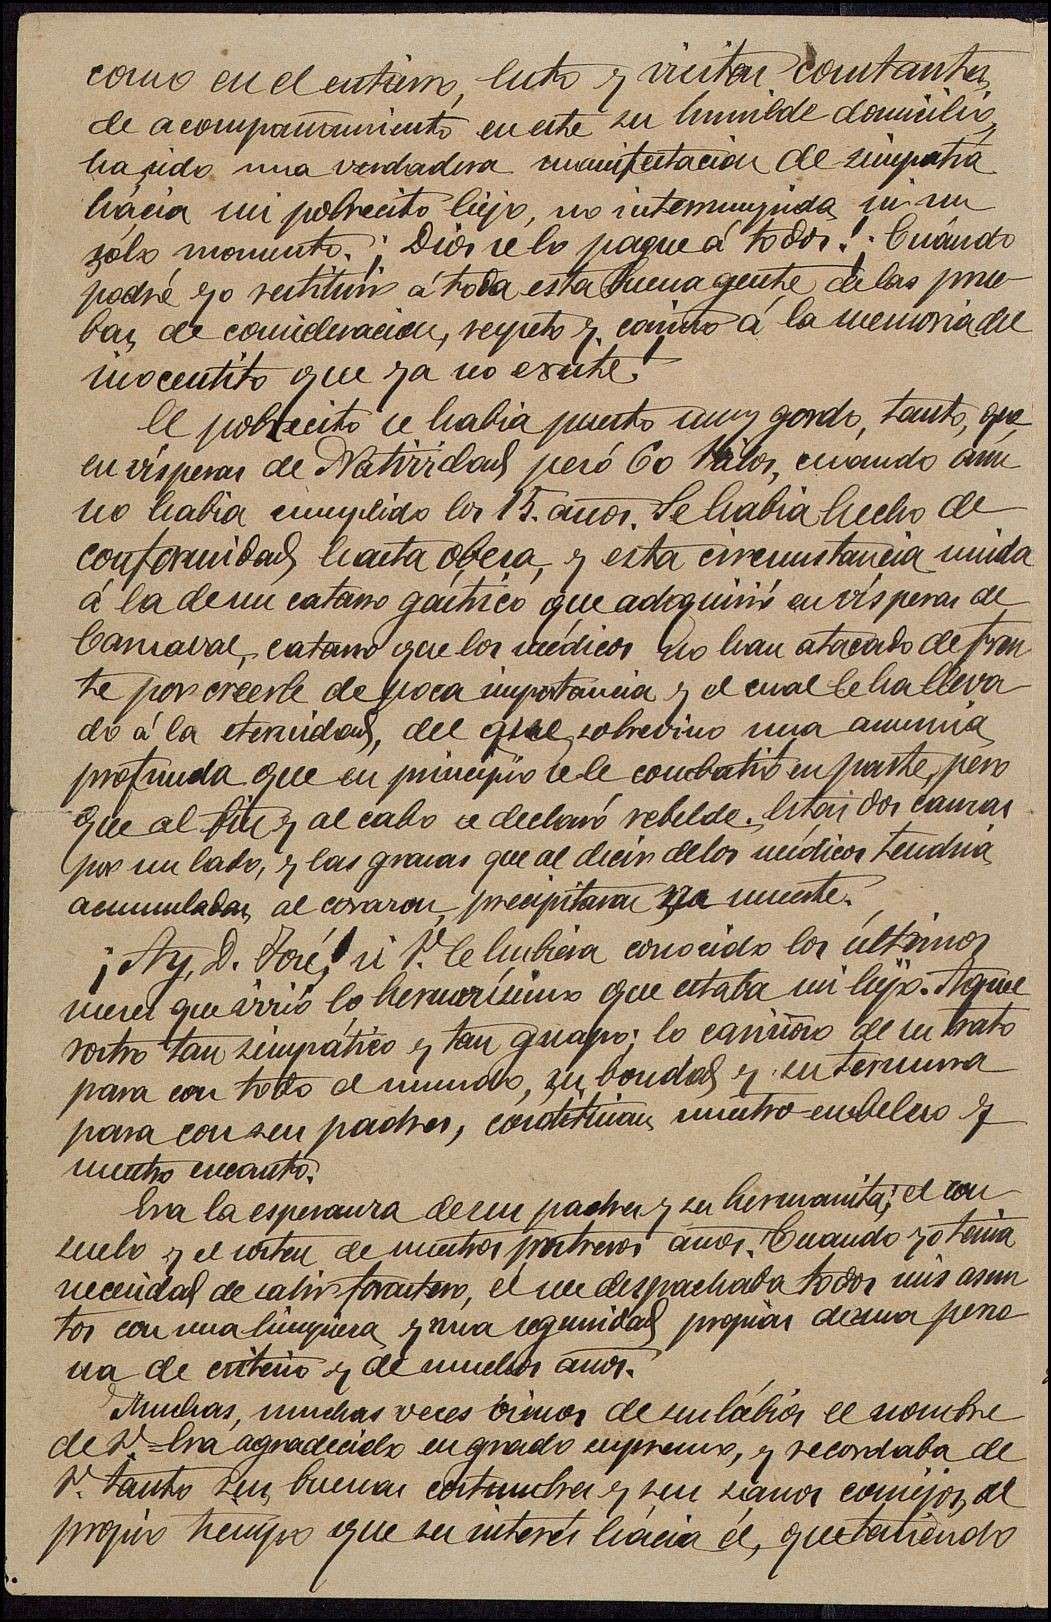 como en el entierro, luto y visitas constantes
de acompañamiento en este su humilde domicilio,
ha sido una verdadera manifestación de simpatía
hácia mi pobrecito hijo, no interrumpida ni un
sólo momento. ¡Dios se lo pague á todos! ¡Cuándo
podré yo restituir á toda esta buena gente de las prue-
bas de consideracion, respeto y cariño á la memoria del
inocentito que ya no existe!
El pobrecito se habia puesto muy gordo, tanto, que
en vísperas de Natividad pesó 60 Kilos, cuando aún
no habia cumplido los 15 años. Se habia hecho de
conformidad hasta obesa, y esta circunstancia unida
á la de un catarro gástrico que adquirió en vísperas de
Carnaval, catarro que los médicos no han atacado de fren-
te por creerle de poca importancia y el cual le ha lleva-
do á la eternidad, del que sobrevino una anemia
profunda que en principio se le combatió en parte, pero
que al fin y al cabo se declaró rebelde. Estas dos causas
por un lado, y las grasas que al decir de los médicos tendría
acumuladas al corazon, precipitaron su muerte.
¡Ay, D. José! si V. le hubiera conocido los últimos
meses que vivió lo hermosísimo que estaba mi hijo. Aquel
rostro tan simpático y tan guapo; lo cariñoso de su trato
para con todo el mundo, su bondad y su ternura
para con sus padres, constituian nuestro embeleso y
nuestro encanto.
Era la esperanza de sus padres y su hermanita; el con-
suelo y el sosten de nuestros postreros años. Cuando yo tenia
necesidad de salir forastero, el me despachaba todos mis asun-
tos con una limpieza y una seguridad propias de una perso-
na de criterio y de muchos años.
Muchas, muchas veces oimos de sus lábios el nombre
de V. Era agradecido en grado supremo, y recordaba de
V. tanto sus buenas costumbres y sus sanos consejos, al
propio tiempo que su interés hácia él, que teniendo